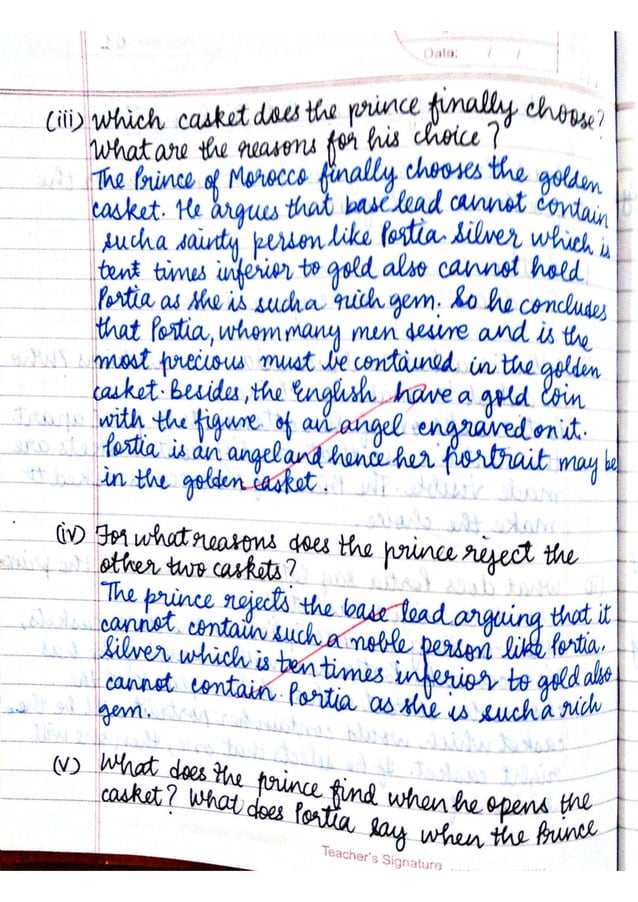 Date: / /
(iii) Which casket does the prince finally choose?
What are the reasons for his choice?
The Prince of Morocco finally chooses the golden
casket. He argues that base lead cannot contain
such a sainty person like Portia. Silver which is
tent times inferior to gold also cannot hold
Portia as she is such a rich gem. So he concludes
that Portia, whom many men desire and is the
most precious must be contained in the golden
casket. Besides, the English have a gold coin
with the figure of an angel engraved on it.
Portia is an angel and hence her portrait may be
in the golden casket.
(iv) For what reasons does the prince reject the
other two caskets?
The prince rejects the base lead arguing that it
cannot contain such a noble person like Portia.
Silver which is ten times inferior to gold also
cannot contain Portia as she is such a rich
gem.
(v) What does the prince find when he opens the
casket? What does Portia say when the Prince
Teacher's Signature